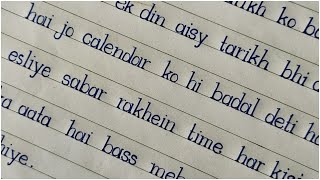 ek din aisy tarikh bhi
hai jo calendar ko hi badal deti
esliye sabar rakhein time har
aata hai bass